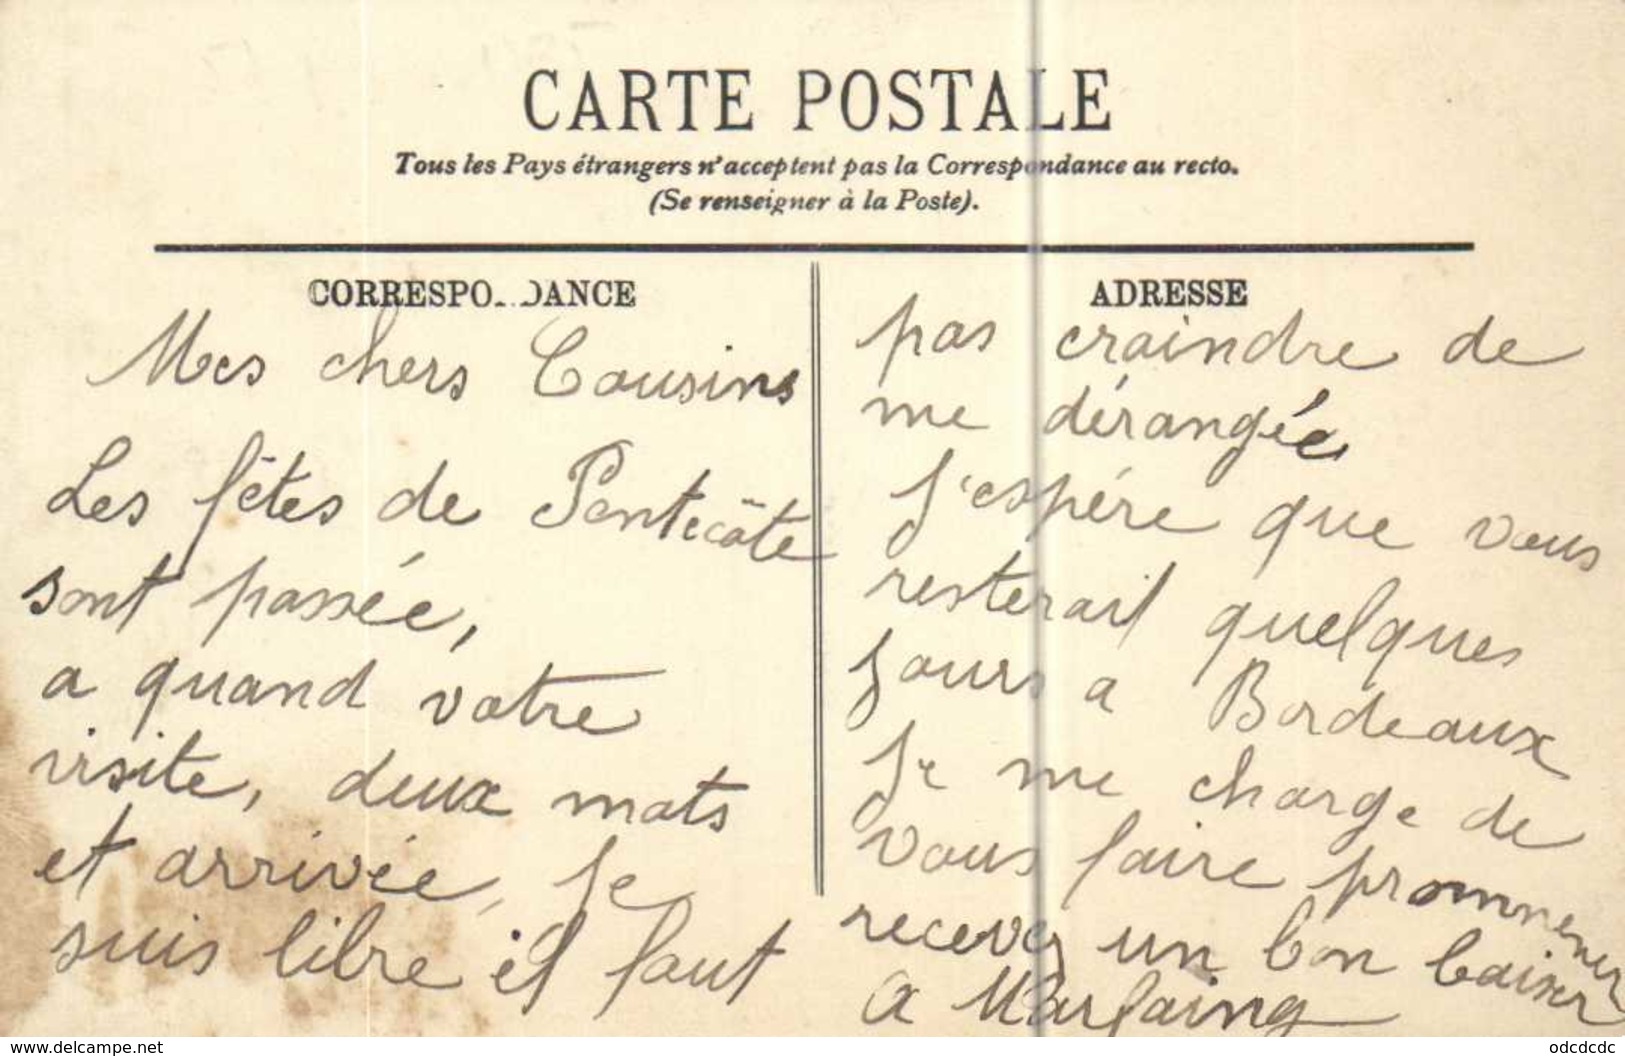 CARTE POSTALE
Tous les Pays étrangers n'acceptent pas la Correspondance au recto.
(Se renseigner à la Poste).
CORRESPO..DANCE
Mes chers Cousins
Les fêtes de Pentecôte
sont passée,
a quand votre
visite, deux mots
et arrivée, Je
suis libre il faut
ADRESSE
pas craindre de
me dérangée
J'espére que vous
resterait quelques
Jours a Bordeaux
Je me charge de
vous faire prommener
recever un bon baiser
A Marfaing
www.delcampe.net
odcdcdc